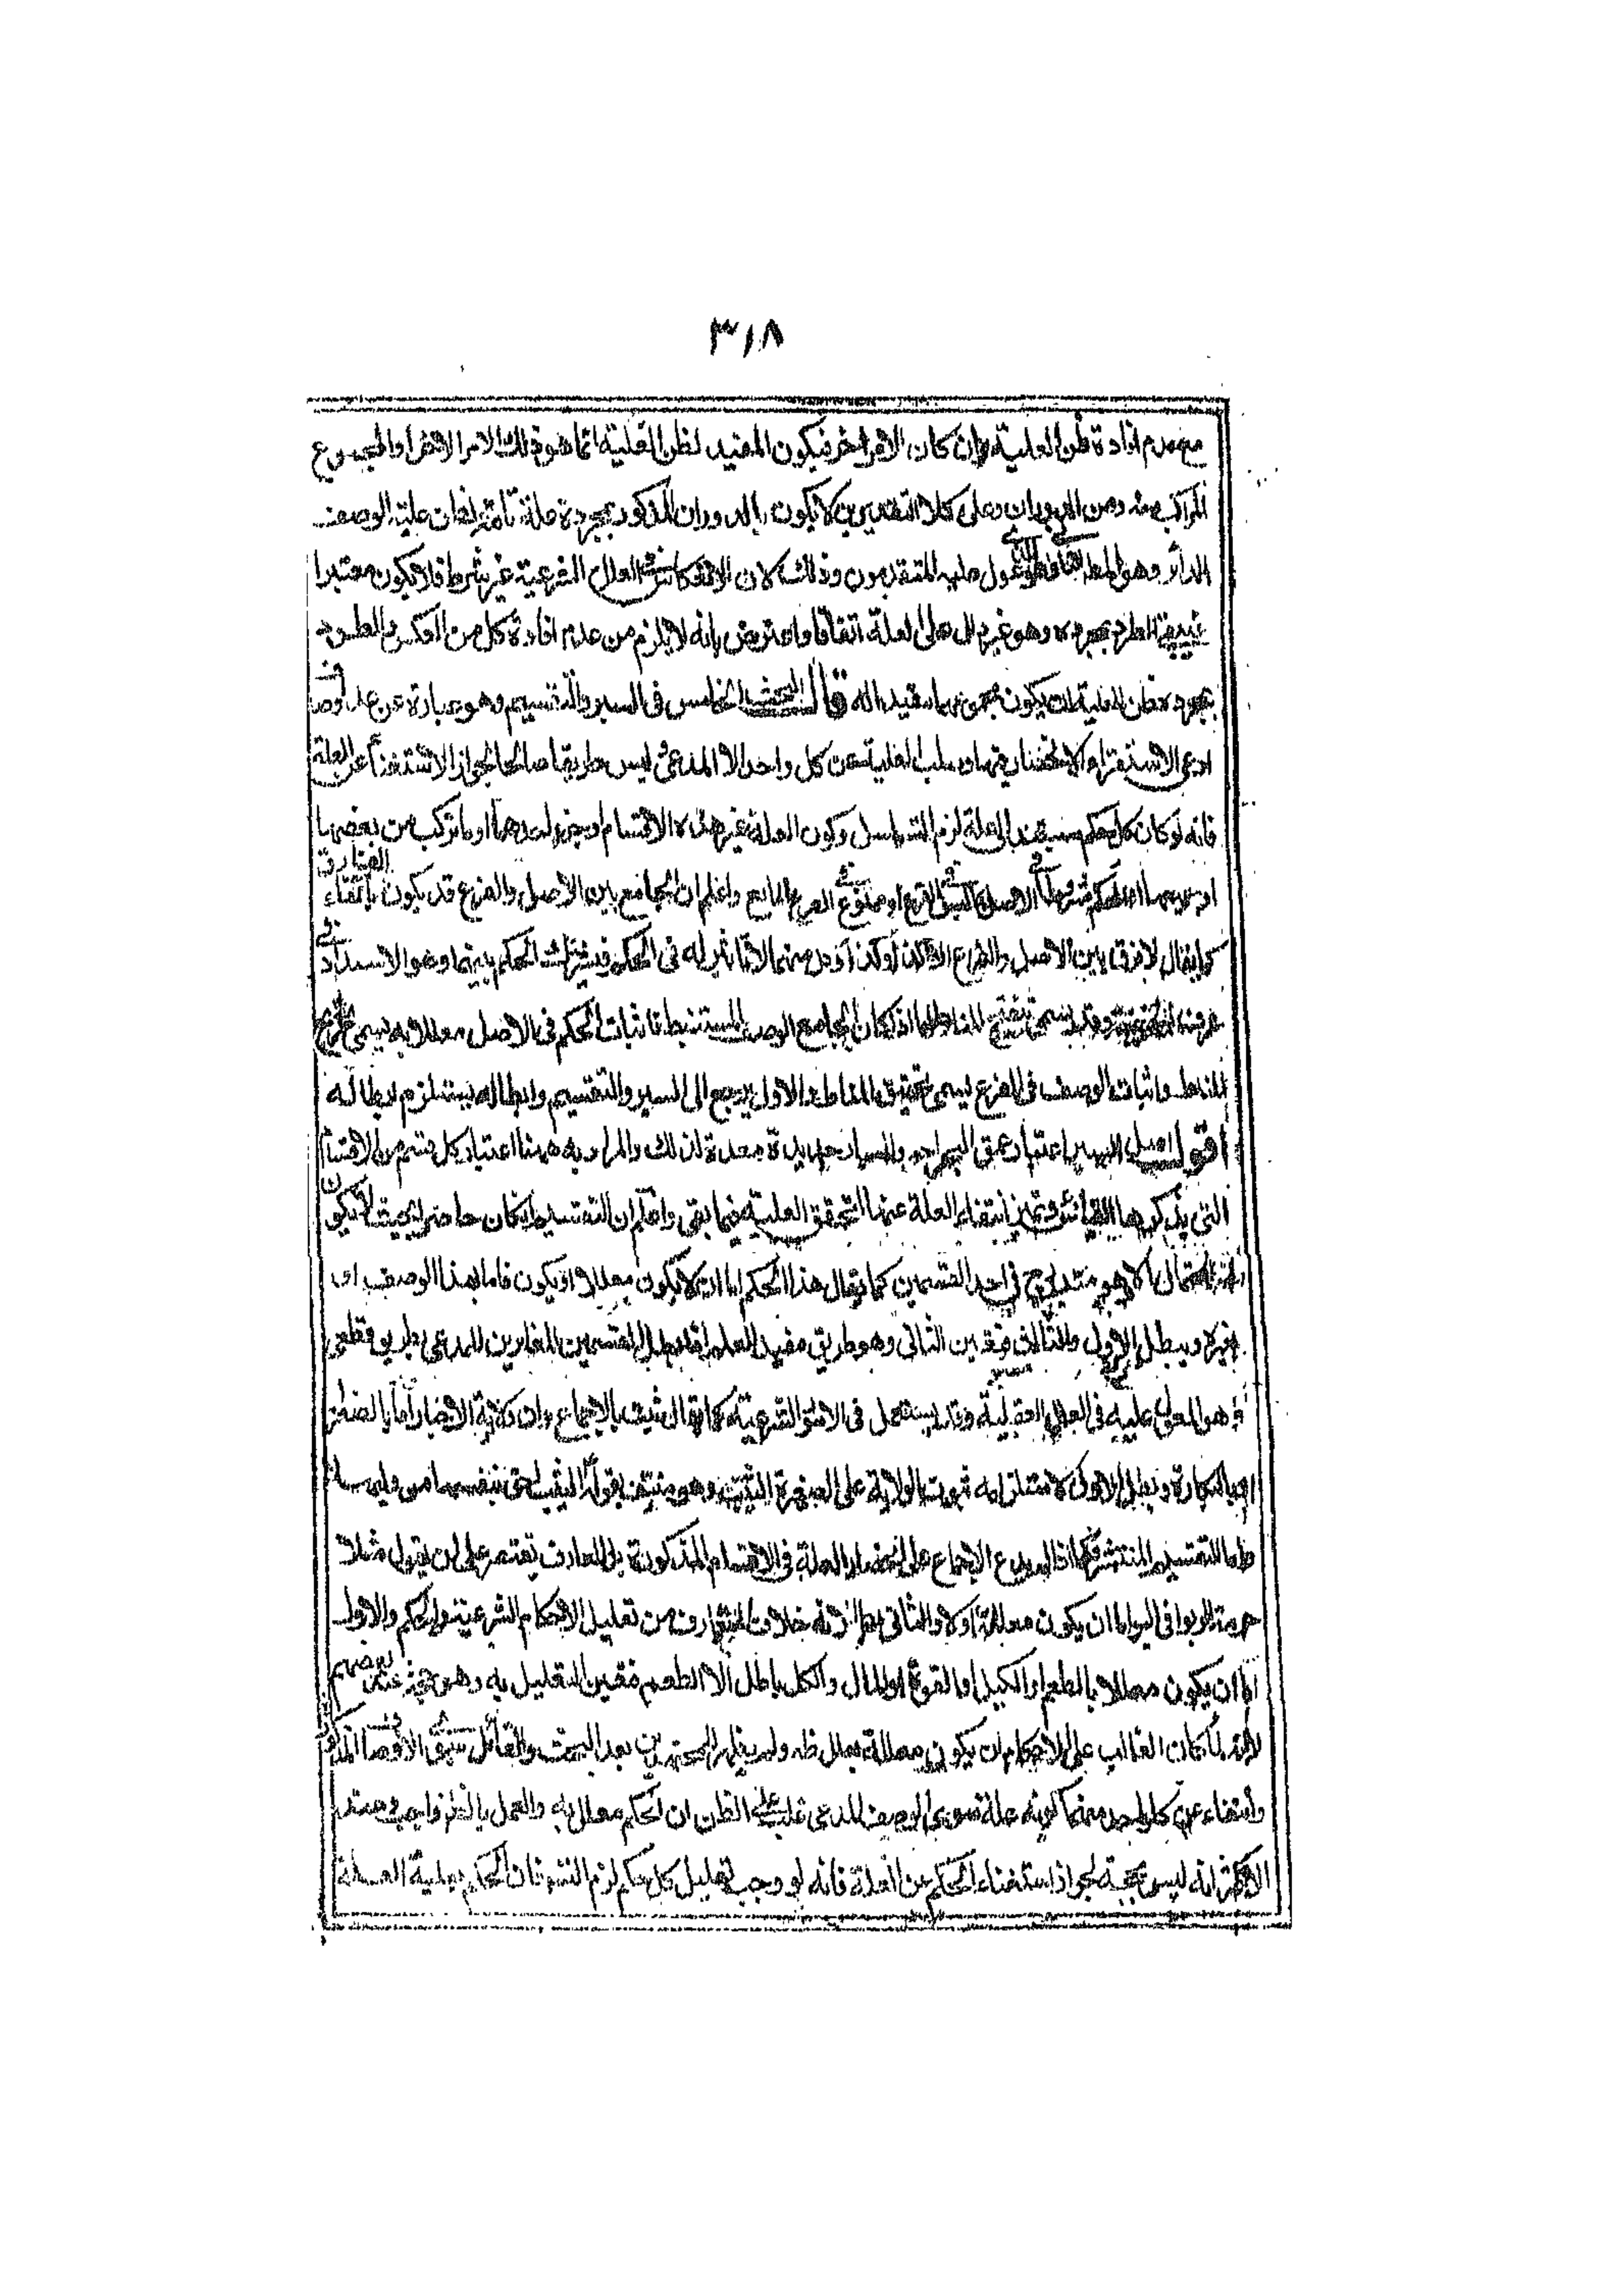 ٣١٨
مع عدم افادة ظن العلية وان كان الاخر فيكون المفيد لظن العلية انما هو ذلك الامر الاخر او المجموع
المركب منه ومن الدوران وعلى كلا التقديرين لا يكون الدوران المذكور بمجرده علة تامة لظن علية الوصف
الدائر وهو المط عول عليه المتقدمون وذلك لان الانعكاس في العلل الشرعية غير شرط فلا يكون معتبرا
الطرد بمجرده وهو غير دال على العلة اتفاقا واعترض بانه لا يلزم من عدم افادة كل من العكس والطرد
بمجرده ظن العلية ان يكون مجموعهما مفيدا له قال البحث الخامس في السبر والتقسيم وهو عبارة عن عد اوصاف
ادعى الاستقراء الانحصار فيها وسلب العلية عن كل واحد الا المدعى وليس طريقا صالحا لجواز الاستغناء عن العلة
فانه لو كان كل حكم مستندا الى العلة لزم التسلسل وكون العلة غير هذه الاقسام او جزء احدهما او ما تركب من بعضها
او الحكم مشروطا في الاصل في الفرع او ممنوع في الفرع لمانع واعلم ان الجامع بين الاصل والفرع قد يكون بالغاء الفارق
كما يقال لا فرق بين الاصل والفرع الا كذا وكذا وكل منهما لا تاثير له في الحكم فيشترك الحكم بينهما وهو الاستدلال في
عرف الحنفية وقد يسمى تنقيح المناط اما اذا كان الجامع الوصف المستنبط فاثبات الحكم في الاصل معللا به يسمى تخريج
المناط واثبات الوصف في الفرع يسمى تحقيق المناط والاول يرجع الى السبر والتقسيم وابطاله يستلزم ابطاله
اقول اصل السبر اعتبار عمق الجراحة والمسبار حديدة معدة لذلك والمراد به ههنا اعتبار كل قسم من الاقسام
التي يذكرها القائس وتميز انتفاء العلة عنها لتحقق العلية فيما بقى واعلم ان التقسيم ان كان حاصرا بحيث لا يكون
احتمال الا وهو مندرج في احد القسمين كما يقال هذا الحكم اما ان لا يكون معللا او يكون فاما بهذا الوصف او
بغيره ويبطل الاول والثالث فتعين الثاني وهو طريق مفيد للعلم اذا بطل القسمين المغايرين للمدعى بطريق قطعي
وهو المعول عليه في العلل العقلية وقد يستعمل في الامور الشرعية كما يقال ثبت بالاجماع ان ولاية الاجبار اما بالصغر
او بالبكارة ويبطل الاول لاستلزامه ثبوت الولاية على الصغيرة الثيب وهو منتف بقوله الثيب احق بنفسها من وليها
اما التقسيم المنتشر فكما اذا لم يدع الاجماع على انحصار العلة في الاقسام المذكورة بل المعارف يقتصر على ان يقول مثلا
حرمة الربوا في البر اما ان يكون معللة او لا والثاني باطل لانه خلاف المتعارف من تعليل الاحكام الشرعية والحكم والاول
اما ان يكون معللا بالطعم او الكيل او القوت او المال والكل باطل الا الطعم فتعين التعليل به وهو حجة عند بعضهم
لانه لما كان الغالب على الاحكام ان يكون معللة بعلل ظ ولم يظهر للمجتهدين بعد البحث والقائل سوى الاوصاف المذكورة
وانتفاء عن كل واحد منها كونه علة سوى الوصف المدعى غلب على الظن ان الحكم معلل به والعمل بالظن واجب وعند
الاكثر انه ليس بحجة لجواز استغناء الحكم عن العلة فانه لو وجب تعليل كل حكم لزم التس فان الحكم بعلية العلة